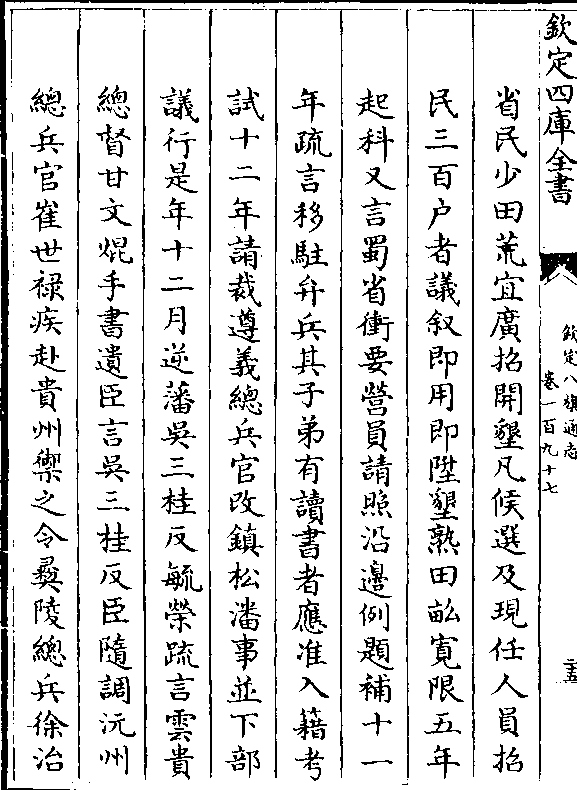 欽定四庫全書
欽定八旗通志
卷一百九十七
二十五
省民少田荒宜廣招開墾凡候選及現任人員招
民三百户者議叙即用即陞墾熟田畝寛限五年
起科又言蜀省衝要營員請照沿邊例題補十一
年疏言移駐弁兵其子弟有讀書者應准入籍考
試十二年請裁遵義總兵官改鎮松潘事並下部
議行是年十二月逆藩吳三桂反毓榮疏言雲貴
總督甘文焜手書遺臣言吳三桂反臣隨調沅州
總兵官崔世禄疾赴貴州禦之令彝陵總兵徐治